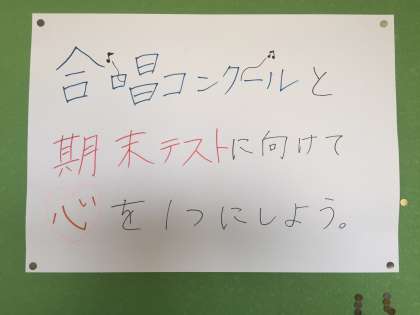 合唱コンクールと
期末テストに向けて
心を1つにしよう。